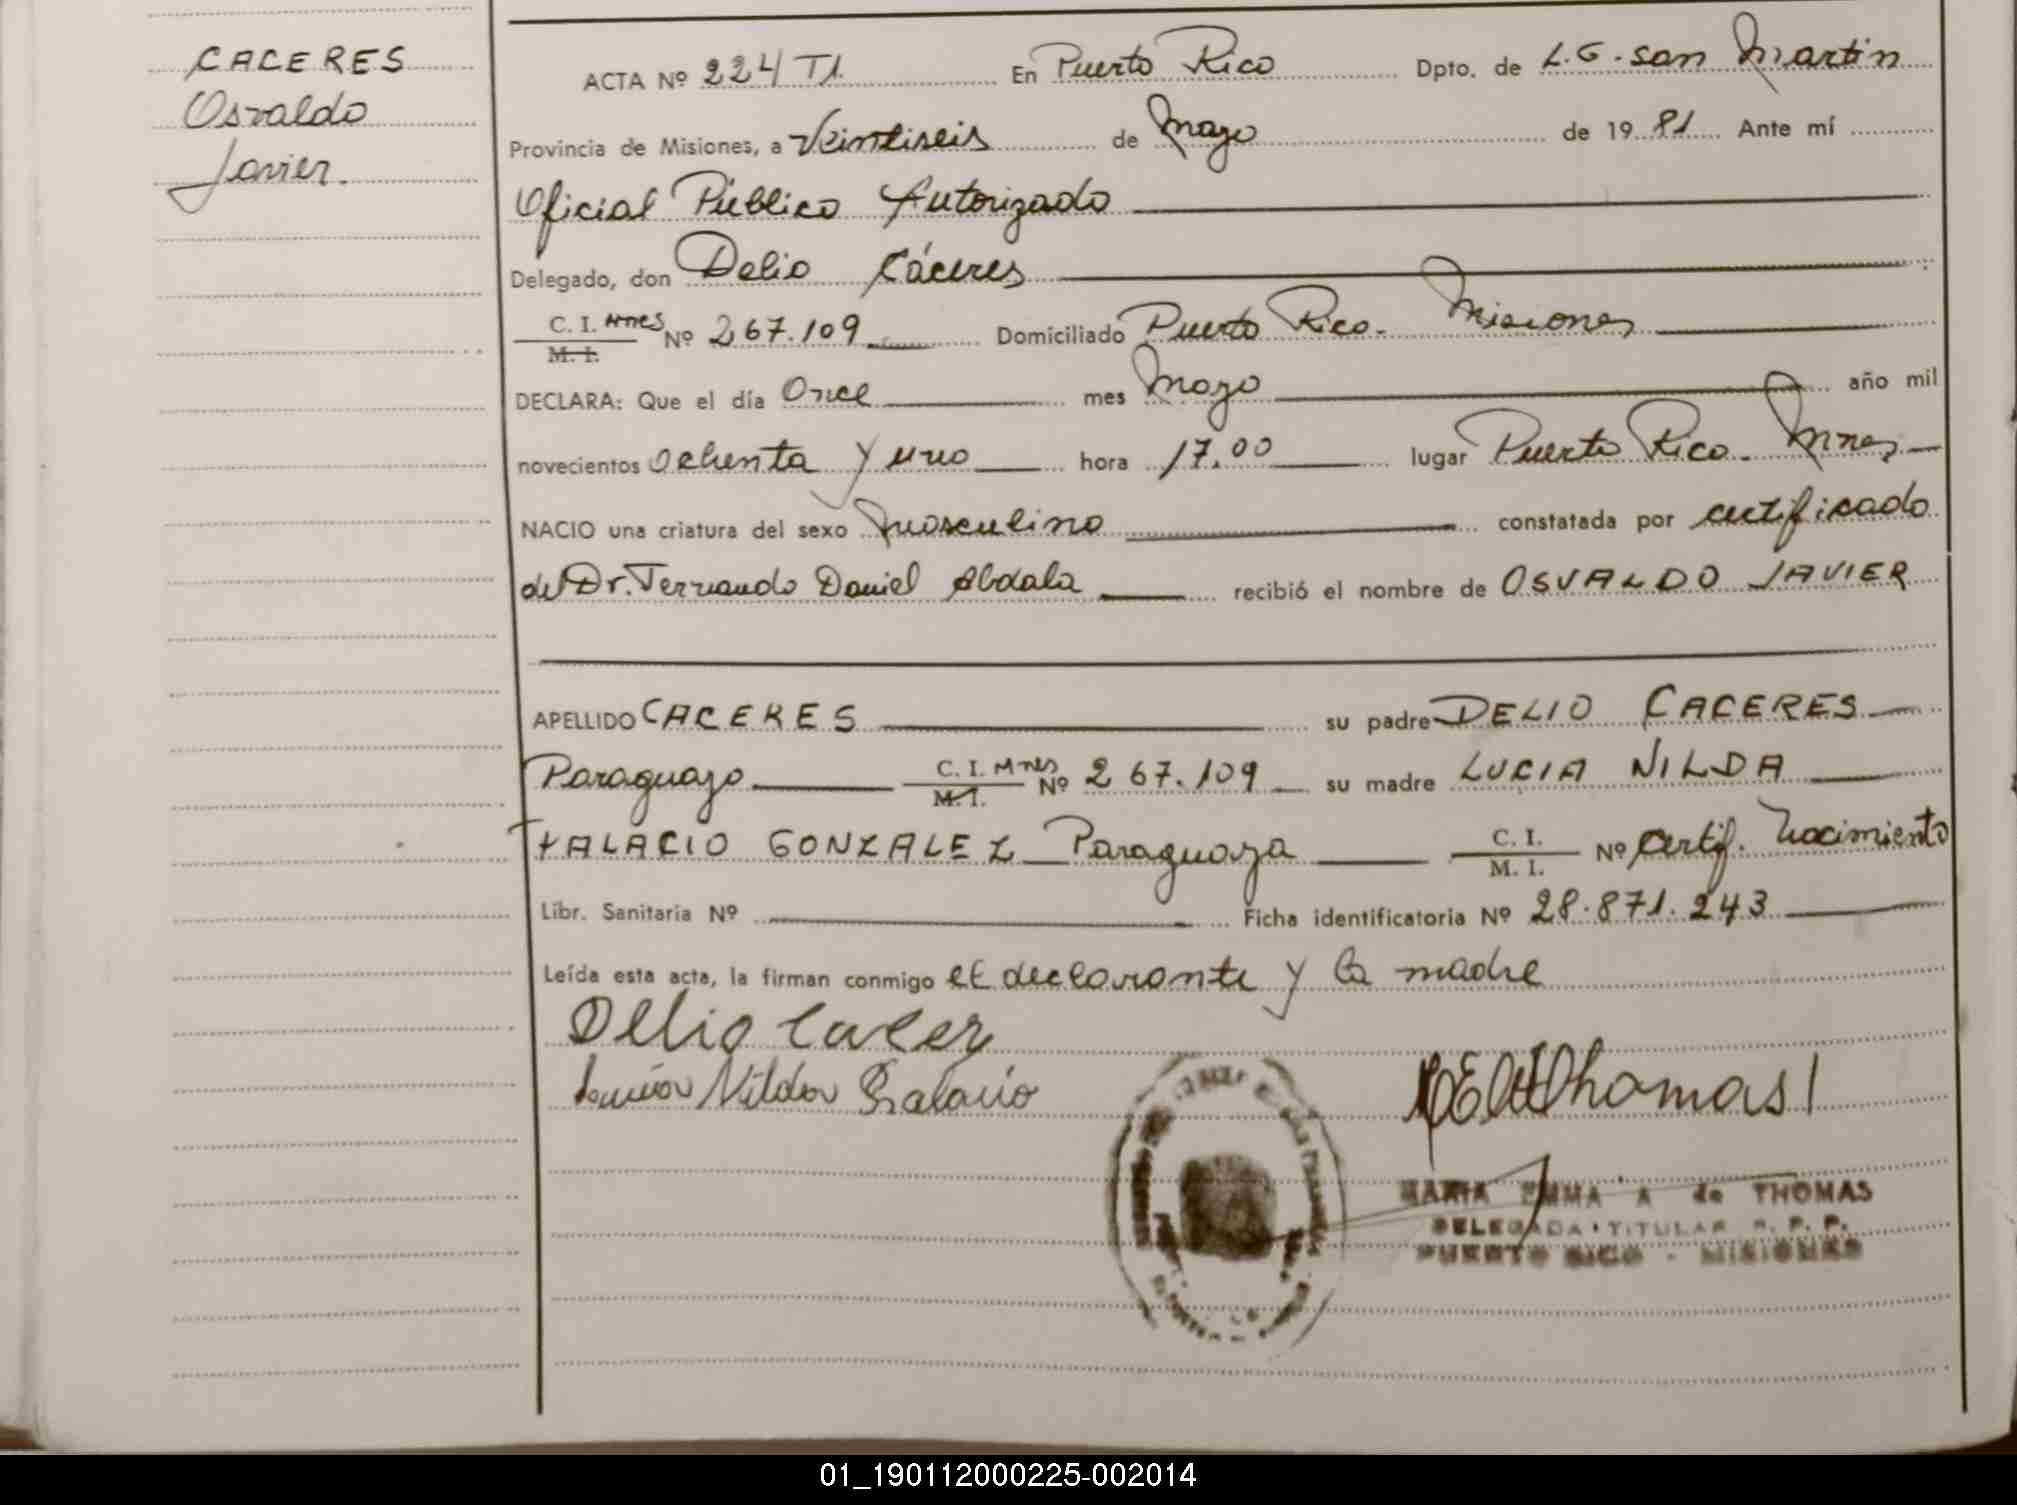 CACERES
Osvaldo
Javier.
ACTA Nº 224 T1. En Puerto Rico Dpto. de L.G. san Martin
Provincia de Misiones, a Veintiseis de Mayo de 19 81 Ante mí
Oficial Público Autorizado
Delegado, don Delio Cáceres
C. I. Mnes Nº 267.109 Domiciliado Puerto Rico. Misiones
M. I.
DECLARA: Que el día Once mes Mayo año mil
novecientos ochenta y uno hora 17.00 lugar Puerto Rico. Mnes
NACIO una criatura del sexo Masculino constatada por certificado
del Dr. Fernando Daniel Abdala recibió el nombre de OSVALDO JAVIER
APELLIDO CACERES su padre DELIO CACERES
Paraguayo C. I. Mnes Nº 267.109 su madre LUCIA NILDA
M. I.
PALACIO GONZALEZ Paraguaya C. I. Nº Certif. Nacimiento
M. I.
Libr. Sanitaria Nº Ficha identificatoria Nº 28.871.243
Leída esta acta, la firman conmigo el declarante y la madre
Delio Cacer
Lucia Nilda Palacio
Thomas
MARIA EMMA A de THOMAS
DELEGADA TITULAR R. P. P.
PUERTO RICO - MISIONES
01_190112000225-002014